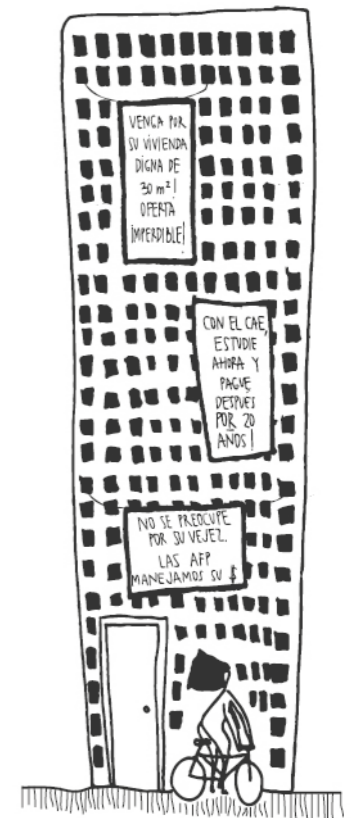 VENGA POR
SU VIVIENDA
DIGNA DE
30 m²!
OFERTA
IMPERDIBLE!
CON EL CAE,
ESTUDIE
AHORA Y
PAGUE
DESPUES
POR 20
AÑOS!
NO SE PREOCUPE
POR SU VEJEZ.
LAS AFP
MANEJAMOS SU $